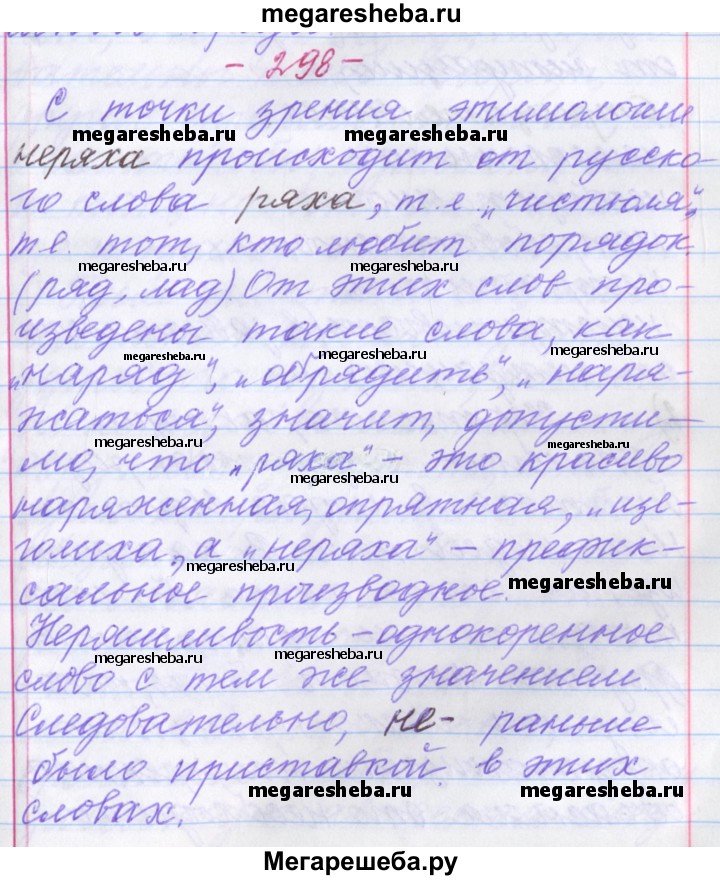 megaresheba.ru
- 298 -
С точки зрения этимологии
megaresheba.ru megaresheba.ru
неряха происходит от русско-
го слова ряха, т.е „чистюля",
т.е. тот, кто любит порядок.
megaresheba.ru megaresheba.ru
(ряд, лад). От этих слов про-
изведены такие слова, как
megaresheba.ru megaresheba.ru
„наряд", „обрядить", „наря-
жаться", значит, допусти-
megaresheba.ru megaresheba.ru
мо, что „ряха" – это красиво
megaresheba.ru
наряженная, опрятная, „ще-
голиха, а „неряха" – префик-
megaresheba.ru megaresheba.ru
сальное производное.
Неряшливость – однокоренное
megaresheba.ru megaresheba.ru
слово с тем же значением.
Следовательно, не- раньше
было приставкой в этих
megaresheba.ru megaresheba.ru
словах.
Мегарешеба.ру